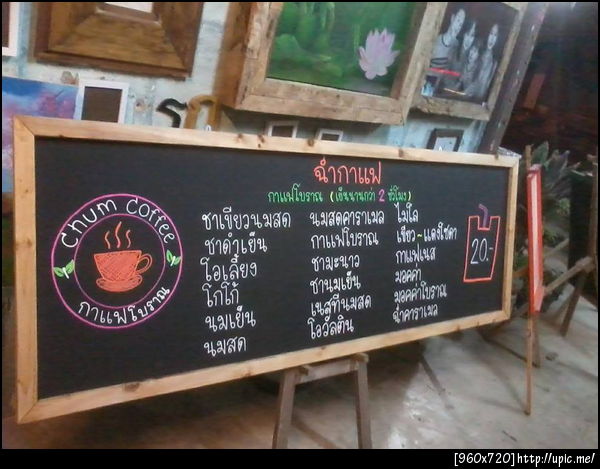 ฉ่ำกาแฟ
กาแฟโบราณ (เย็นนานกว่า 2 ชั่วโมง)
Chum Coffee
กาแฟโบราณ
ชาเขียวนมสด
ชาดำเย็น
โอเลี้ยง
โกโก้
นมเย็น
นมสด
นมสดคาราเมล
กาแฟโบราณ
ชามะนาว
ชานมเย็น
เนสทีนมสด
โอวัลติน
ไมโล
เขียว~แดงโซดา
กาแฟเนส
มอคค่า
มอคค่าโบราณ
ฉ่ำคาราเมล
20.-
[960x720]http://upic.me/